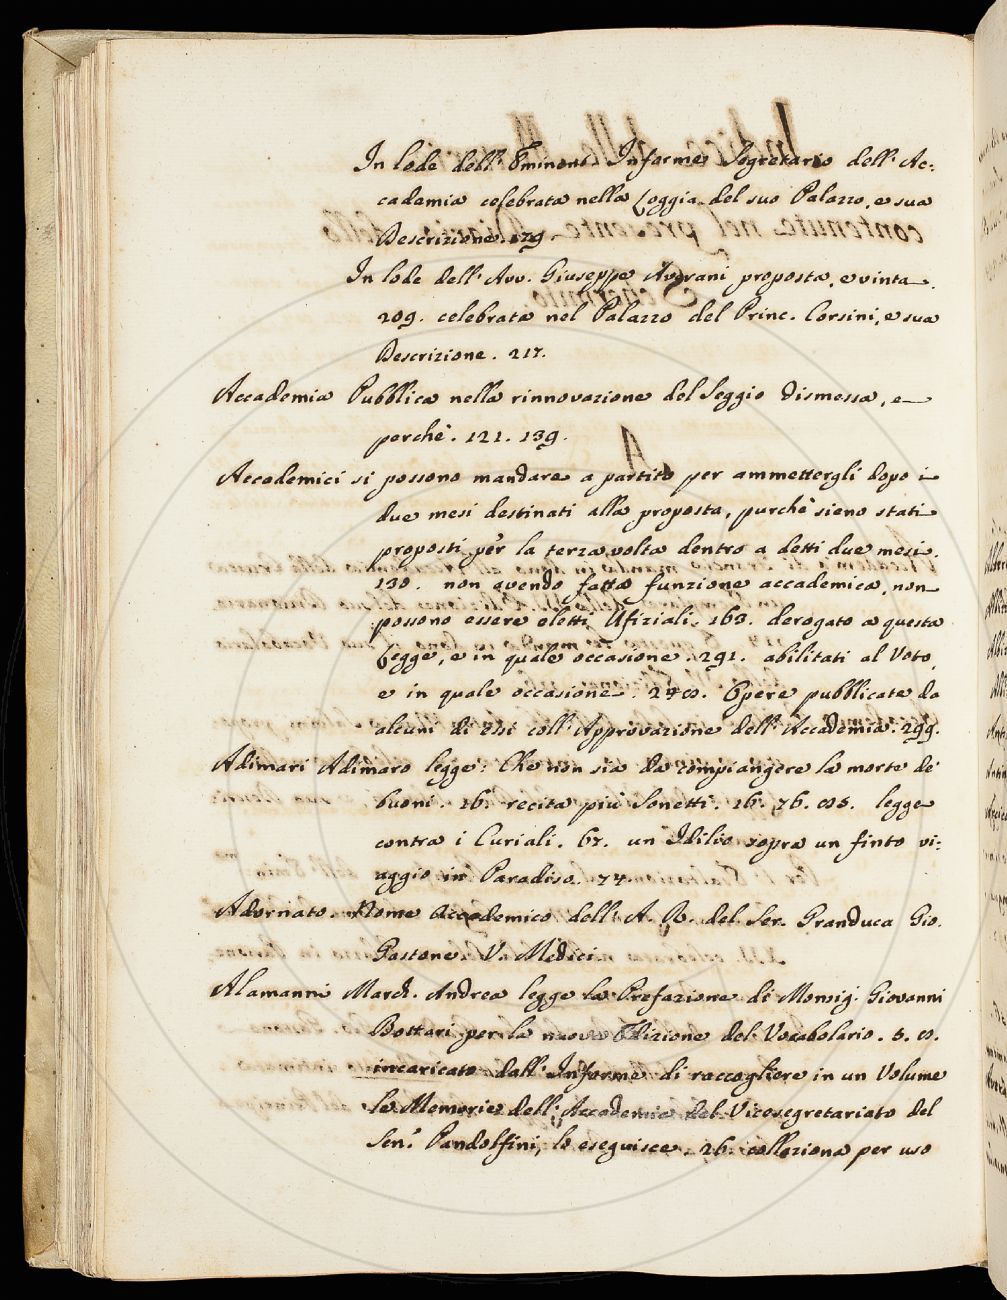 In lode dell' Eminent. Informe Segretario dell' Ac-
cademia celebrata nella Loggia del suo Palazzo, e sua
Descrizione. 179.
In lode dell' Avv. Giuseppe Averani proposta, e vinta
209. celebrata nel Palazzo del Princ. Corsini, e sua
Descrizione. 217.
Accademia Pubblica nella rinnovazione del Seggio dismessa, e
perchè. 121. 139.
Accademici si possono mandare a partito per ammettergli dopo i
due mesi destinati alla proposta, purchè sieno stati
proposti per la terza volta dentro a detti due mesi.
130. non avendo fatta funzione accademica, non
possono essere eletti Ufiziali. 163. derogato a questa
Legge, e in quale occasione. 291. abilitati al Voto,
e in quale occasione. Opere pubblicate da
alcuni di essi coll' Approvazione dell' Accademia. 299.
Adimari Adimaro legge: Che non sia da compiangere la morte de'
buoni. 16. recita più Sonetti. 16. 76. legge
contra i Curiali. 67. un Idilio sopra un finto vi-
aggio in Paradiso. 77.
Adornato. Nome Accademico dell' A. R. del Ser. Granduca Gio.
Gastone. V. Medici.
Alamanni March. Andrea legge la Prefazione di Monsig. Giovanni
Bottari per la nuova Edizione del Vocabolario. 5. 8.
incaricato dall' Informe di raccogliere in un Volume
le Memorie dell' Accademia del Vicesegretariato del
Sen. Pandolfini, lo eseguisce. 26. colleziona per uso